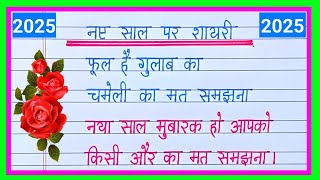 2025
2025
नए साल पर शायरी
फूल है गुलाब का
चमेली का मत समझना
नया साल मुबारक हो आपको
किसी और का मत समझना।